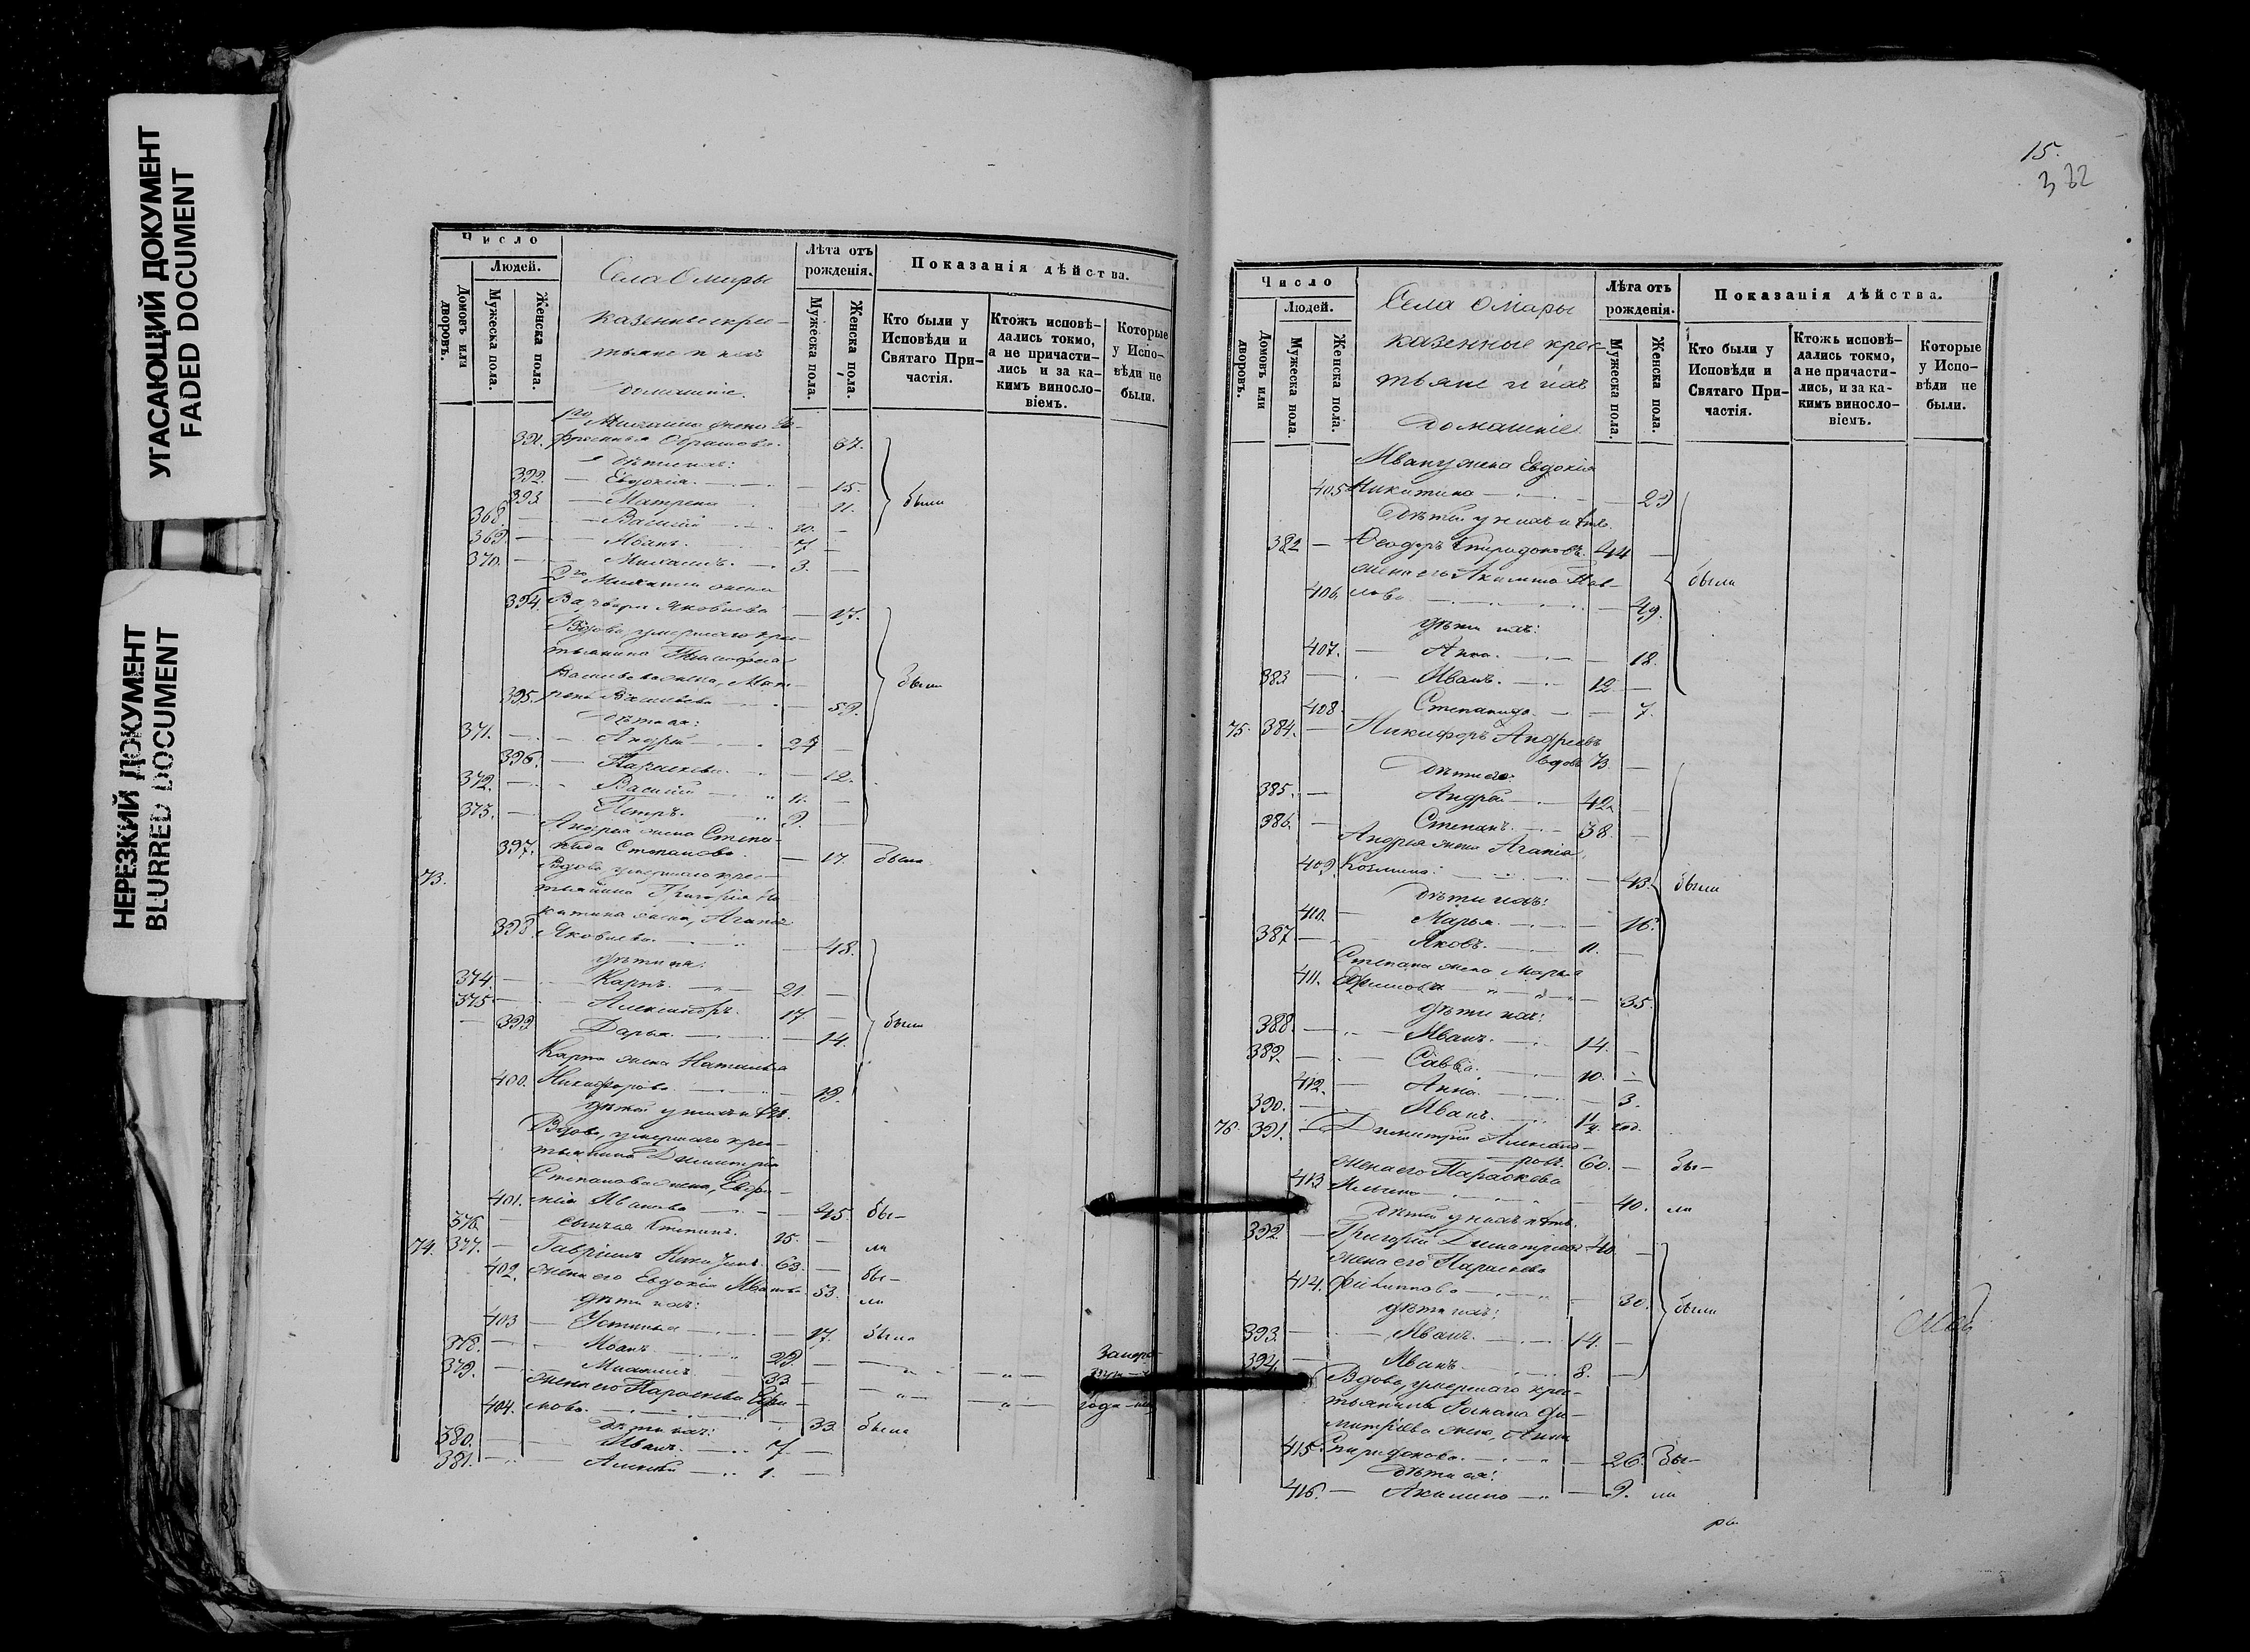 УГАСАЮЩИЙ ДОКУМЕНТ
FADED DOCUMENT
НЕРЕЗКИЙ ДОКУМЕНТ
BLURRED DOCUMENT
Число
Людей.
Домовъ или дворовъ.
Мужеска пола.
Женска пола.
Села Омары
казенные крес-
тьяне и ихъ
домашніе.
Лѣта отъ рожденія.
Мужеска пола.
Женска пола.
Показанія дѣйства.
Кто были у Исповѣди и Святаго При-частія.
Ктожъ исповѣ-дались токмо, а не причасти-лись и за ка-кимъ винословіемъ.
Которые у Испо-вѣди не были.
1го Михаила жена
391.
дѣти ихъ:
392. — Евдокія. — 15.
393 — Матрена 11. были
368. — Василій 10. —
369 — Иванъ. 7 —
370. — Михаилъ. 3. —
2го Михаила жена
394. Варвара Яковлева — 17.
Вдова, умершаго крес-
тьянина
Васильева жена, Мат-
395. рена Васильева — 59. были
дѣти ея:
371. — Андрей — 24 —
396. — Параскева. — 12.
372. — Василій — 11. —
373. — Петръ. 9. —
Андрея жена Степа-
397. нида Степанова. — 17. была
73. Вдова умершаго крес-
тьянина Григорія Ни-
китина жена, Агапія
398. Яковлева. — 48.
дѣти ея:
374. — Карпъ. — 21. —
375 — Александръ. 17 —
399 Дарья. — 14. были
Карпа жена Наталья
400. Никифорова. — 19.
дѣтей у нихъ нѣтъ.
Вдова, умершаго крес-
тьянина Димитрія
Степанова жена, Евдо-
401. кія Иванова — 45. бы-
376. — сынъ ея Степанъ. 15. — ли
74. 377. — Гавріилъ 63. — бы-
402. жена его Евдокія Иванова 53. ли
дѣти ихъ:
403 — Устинья — 17. была
378. — Иванъ 29. —
379. — Михаилъ 33 —
жена его Параскева Ефи-
404. мова. — 33. была
дѣти ихъ:
380. — Иванъ. 7 —
381. — Алексѣй — 1. —
15.
332
Число
Людей.
Домовъ или дворовъ.
Мужеска пола.
Женска пола.
Села Омары
казенные крес-
тьяне и ихъ
домашніе
Лѣта отъ рожденія.
Мужеска пола.
Женска пола.
Показанія дѣйства.
Кто были у Исповѣди и Святаго При-частія.
Ктожъ исповѣ-дались токмо, а не причасти-лись, и за ка-кимъ винословіемъ.
Которые у Испо-вѣди не были.
Ивану жена Евдокія
405 Никитина — 29
дѣтей у нихъ нѣтъ.
382 — Ѳеодоръ Спиридоновъ. 44 —
жена его Акилина Пав-
406. лова — 49. были
дѣти ихъ:
407. — Анна. — 18.
383 — Иванъ. — 12 —
408. Степанида. — 7.
75. 384. — Никифоръ Андреевъ
вдовъ 73. —
дѣти его:
385. — Андрей — 42 —
386. — Степанъ. — 38. —
Андрея жена Агапія
409 Козмина. — 43. были
дѣти ихъ:
410. — Марья. — 16.
387 — Яковъ. — 11. —
Степана жена Марья
411. Ефимова — 35.
дѣти ихъ:
388. — Иванъ. — 14. —
389. — Савва. — 10. —
412. — Анна. — 3.
390. — Иванъ. 1/2 год.
76. 391. — Димитрій Александ-
ровъ. 60. — бы-
жена его Параскева
413 Ильина — 40. ли
дѣтей у нихъ нѣтъ.
392 — Григорій Димитріевъ 40. —
жена его Параскева
414. Филиппова — 30. были
дѣти ихъ:
393. — Иванъ. — 14. —
394. — Иванъ 8. —
Вдова, умершаго крес-
тьянина Романа Ди-
митріева жена, Анна
415. Спиридонова. — 26. бы-
дѣти ея:
416. — Акилина — 9. ли